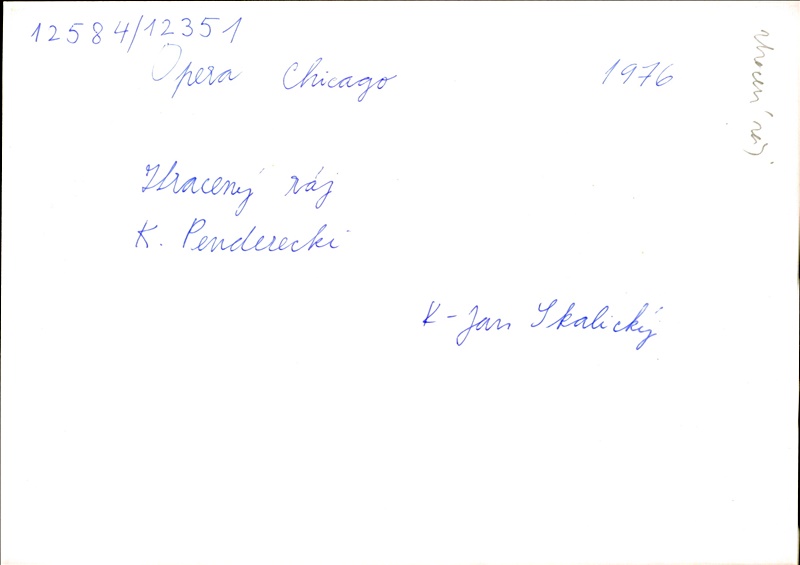 12584/12351
Opera Chicago 1976
Ztracený ráj
K. Penderecki
K - Jan Skalický
ztracený ráj